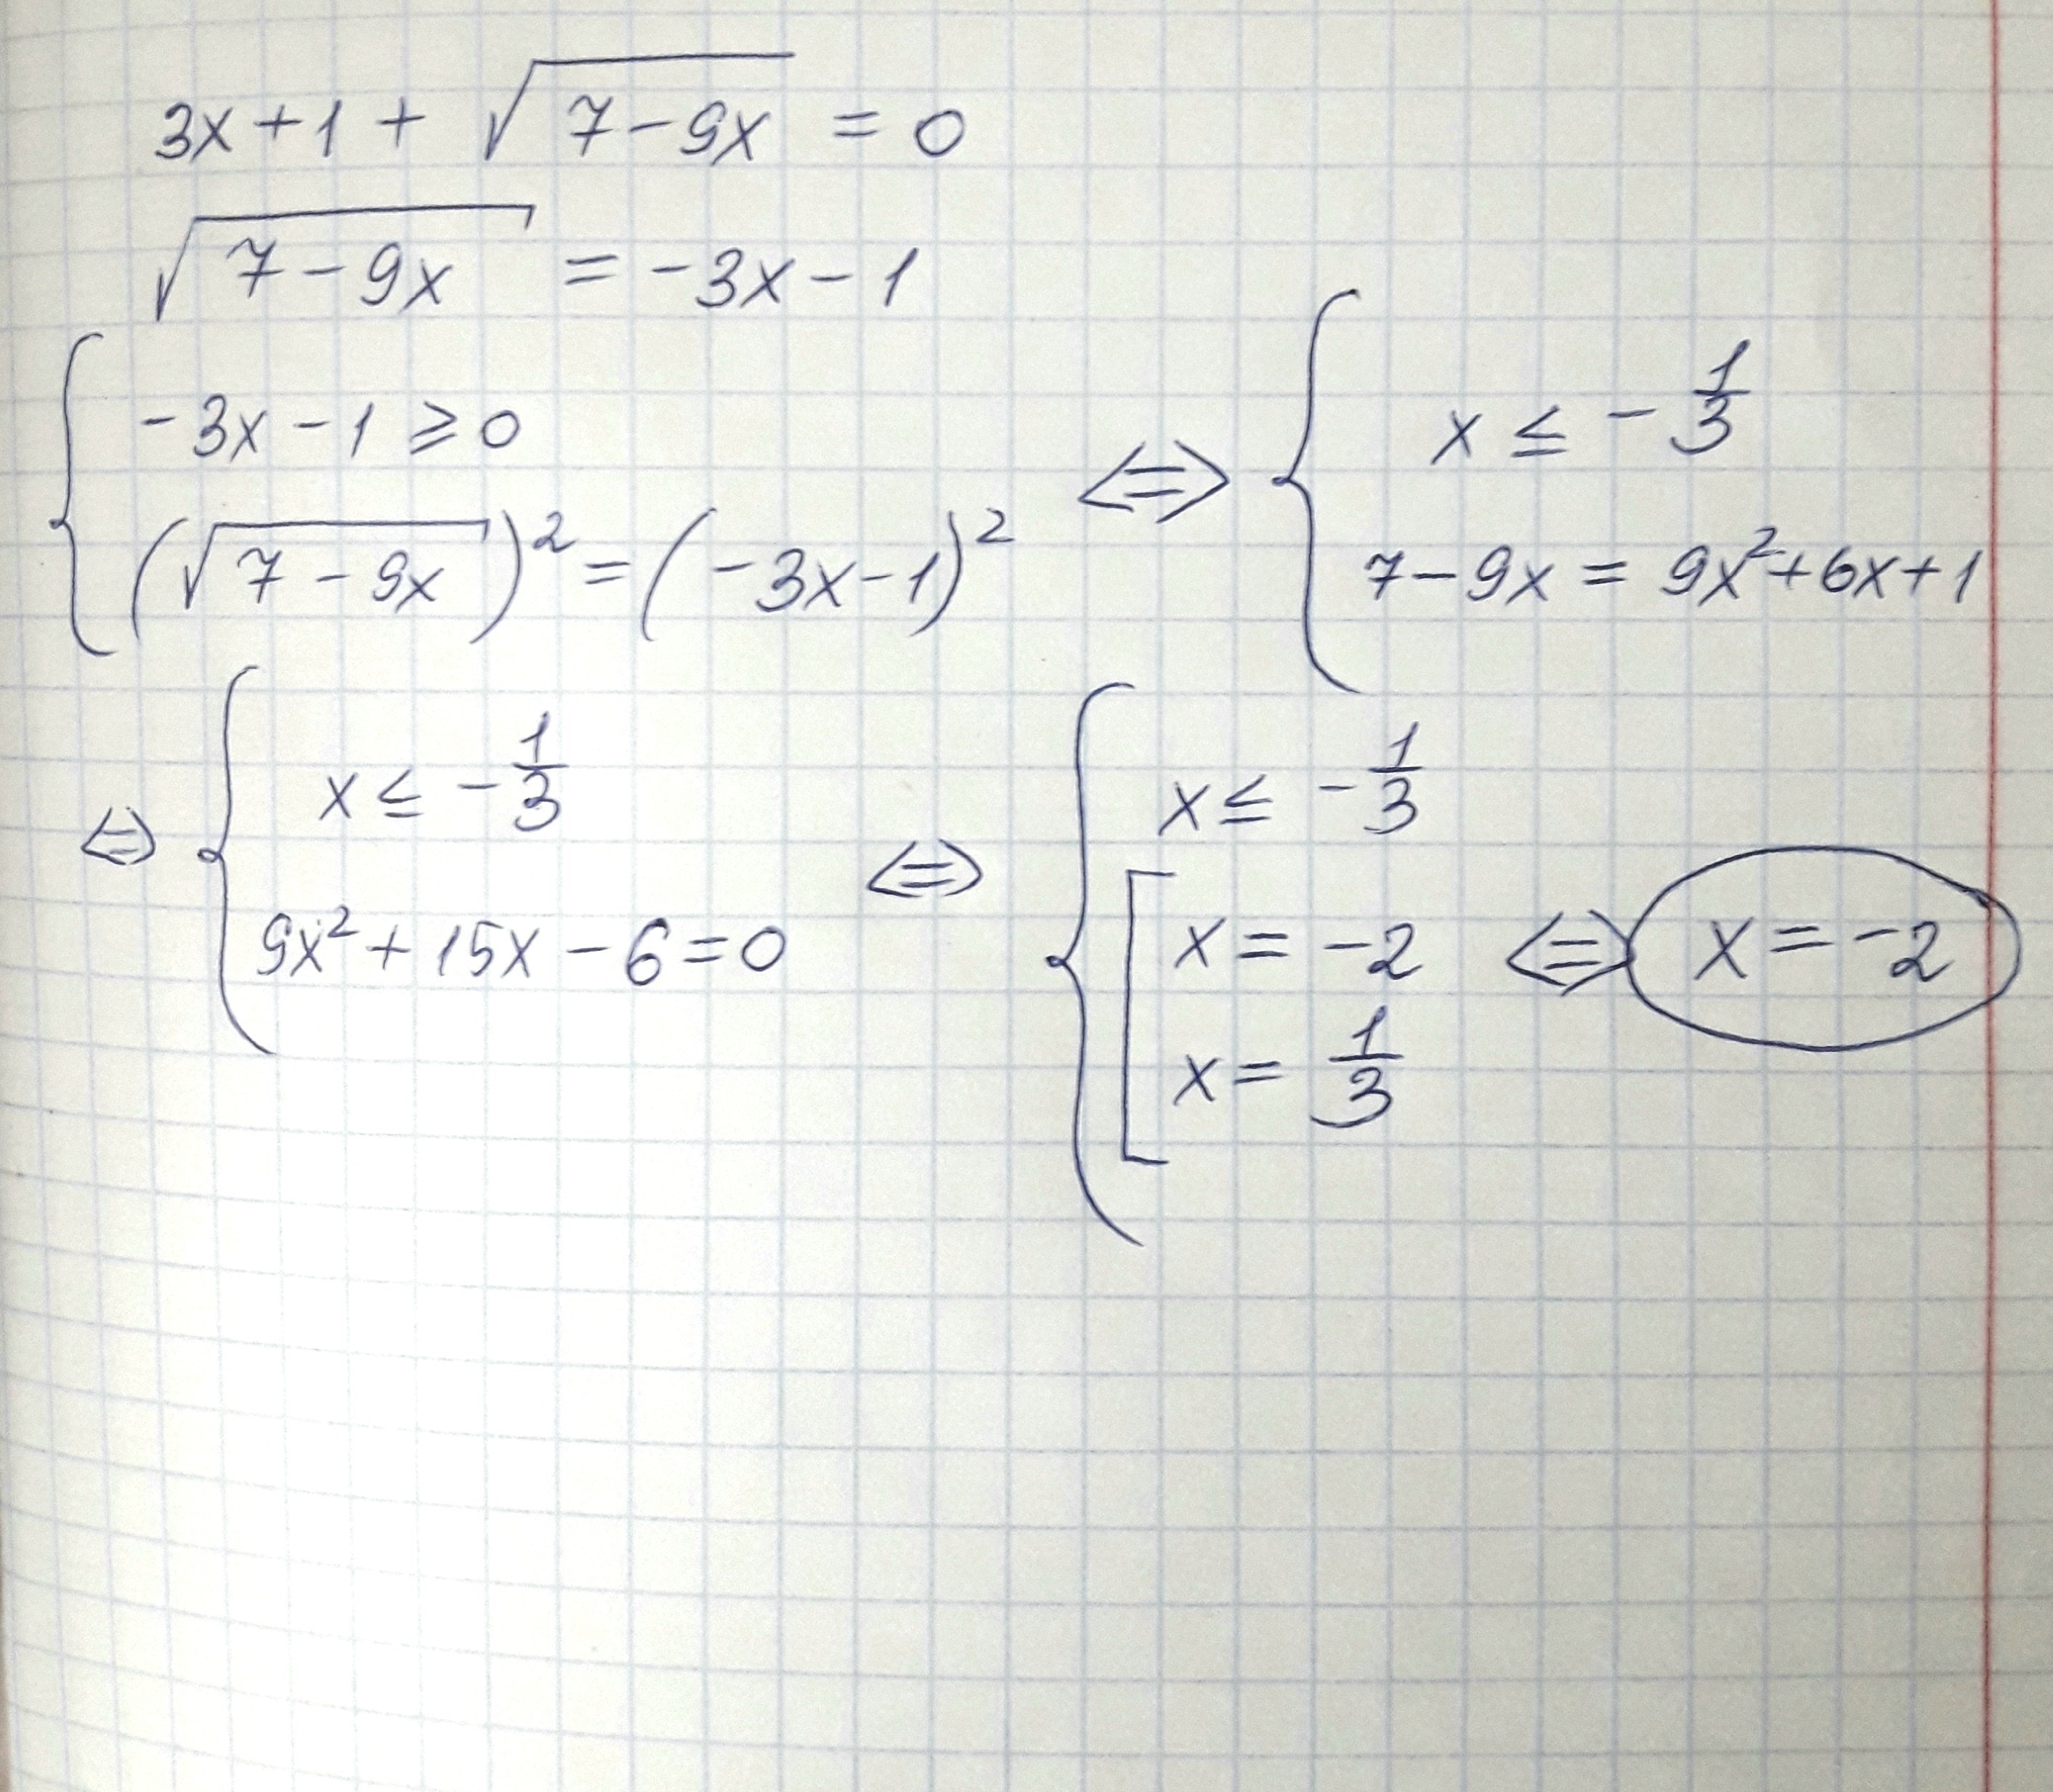 3x+1+√(7-9x) = 0
√(7-9x) = -3x-1
{ -3x-1 ≥ 0
(√(7-9x))² = (-3x-1)²
⇔ { x ≤ -1/3
7-9x = 9x²+6x+1
⇔ { x ≤ -1/3
9x²+15x-6=0
⇔ { x ≤ -1/3
[ x = -2
x = 1/3
⇔ x = -2